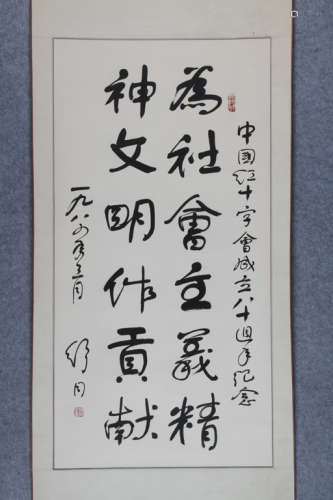 中國红十字會成立八十週年纪念
為社會主義精
神文明作貢献
一九八四年三月
舒同